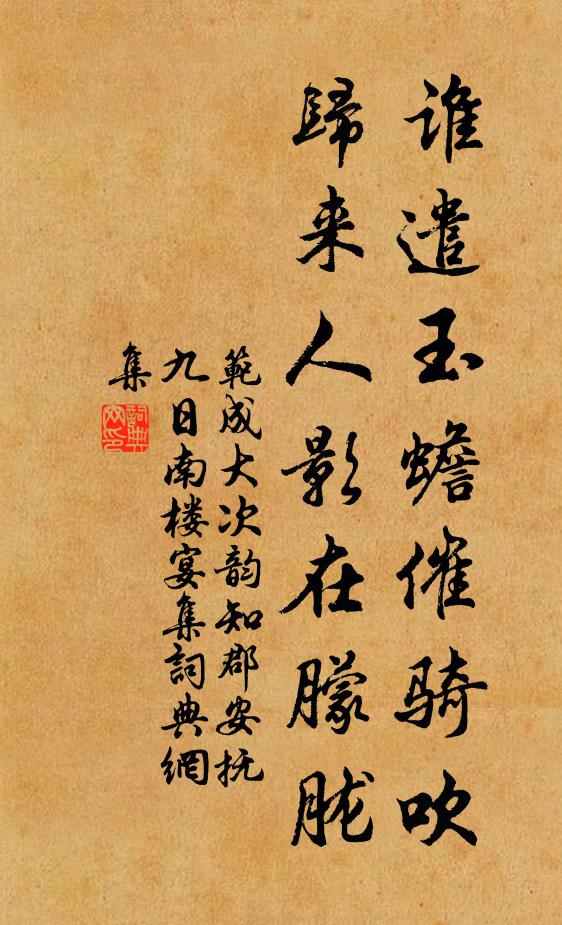 谁遣玉蟾催骑吹
歸来人影在朦胧
範成大次韵知郡安抚
九日南楼宴集詞典網
集
詞典
网印